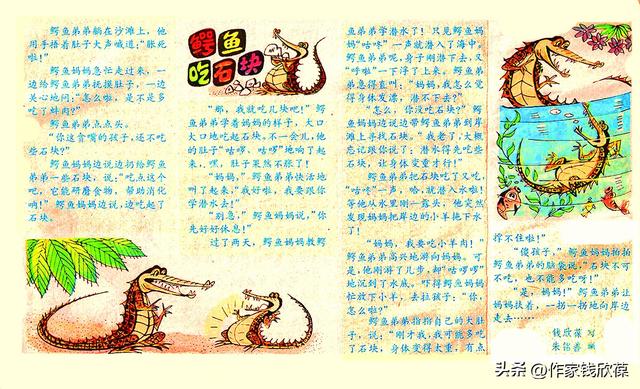 鳄鱼弟弟躺在沙滩上，他
用手捂着肚子大声喊道：“胀死
啦！”
鳄鱼妈妈急忙走过来，一
边给鳄鱼弟弟抚摸肚子，一边
关心地问：“怎么啦，是不是多
吃了蚌肉？”
鳄鱼弟弟点点头。
“你这贪嘴的孩子，还不吃
些石块？”
鳄鱼妈妈边说边扔给鳄鱼
弟弟一些石块，说：“吃点这个
吧，它能研磨食物，帮助消化
啊！”鳄鱼妈妈说，边吃起了
石块。
鳄鱼
吃石块
“那，我就吃几块吧！”鳄
鱼弟弟学着妈妈的样子，大口
大口地吃起石块。不一会儿，他
的肚子“咕咚、咕咚”地响了起
来，嘿，肚子果然不胀了！
“妈妈，”鳄鱼弟弟快活地
叫了起来，“我好啦，我要跟你
学潜水去！”
“别急，”鳄鱼妈妈说，“你
先好好休息！”
过了两天，鳄鱼妈妈教鳄
鱼弟弟学潜水了！只见鳄鱼妈
妈“咕咚”一声就潜入了海中。
鳄鱼弟弟呢，身子刚潜下去，又
“呼啦”一下浮了上来。鳄鱼弟
弟急得直叫：“妈妈，我怎么觉
得身体发漂，潜不下去？”
“怎么，你没吃石块？”鳄
鱼妈妈边说边带鳄鱼弟弟到岸
滩上寻找石块。“我老了，大概
忘记跟你说了：潜水得先吃些
石块，让身体变重才行！”
鳄鱼弟弟把石块吃了又吃，
“咕咚”一声，哈，就潜入水啦！
等他从水里刚一露头，他突然
发现妈妈把岸边的小羊拖下水
了！
“妈妈，我要吃小羊肉！”
鳄鱼弟弟高兴地游向妈妈。可
是，他刚游了几步，却“咕咚咚”
地沉到了水底。吓得鳄鱼妈妈
忙放下小羊，去拉孩子：“你，
怎么啦？”
鳄鱼弟弟指指自己的大肚
子，说：“刚才我，我可能多吃
了石块，身体变得太重，有点
撑不住啦！”
“傻孩子，”鳄鱼妈妈拍拍
鳄鱼弟弟的脑袋说，“石块不可
不吃，也不能多吃呀！”
“是，妈妈！”鳄鱼弟弟让
妈妈扶着，一拐一拐地向岸边
走去……
钱欣葆 写
朱铭善 画
头条 @作家钱欣葆